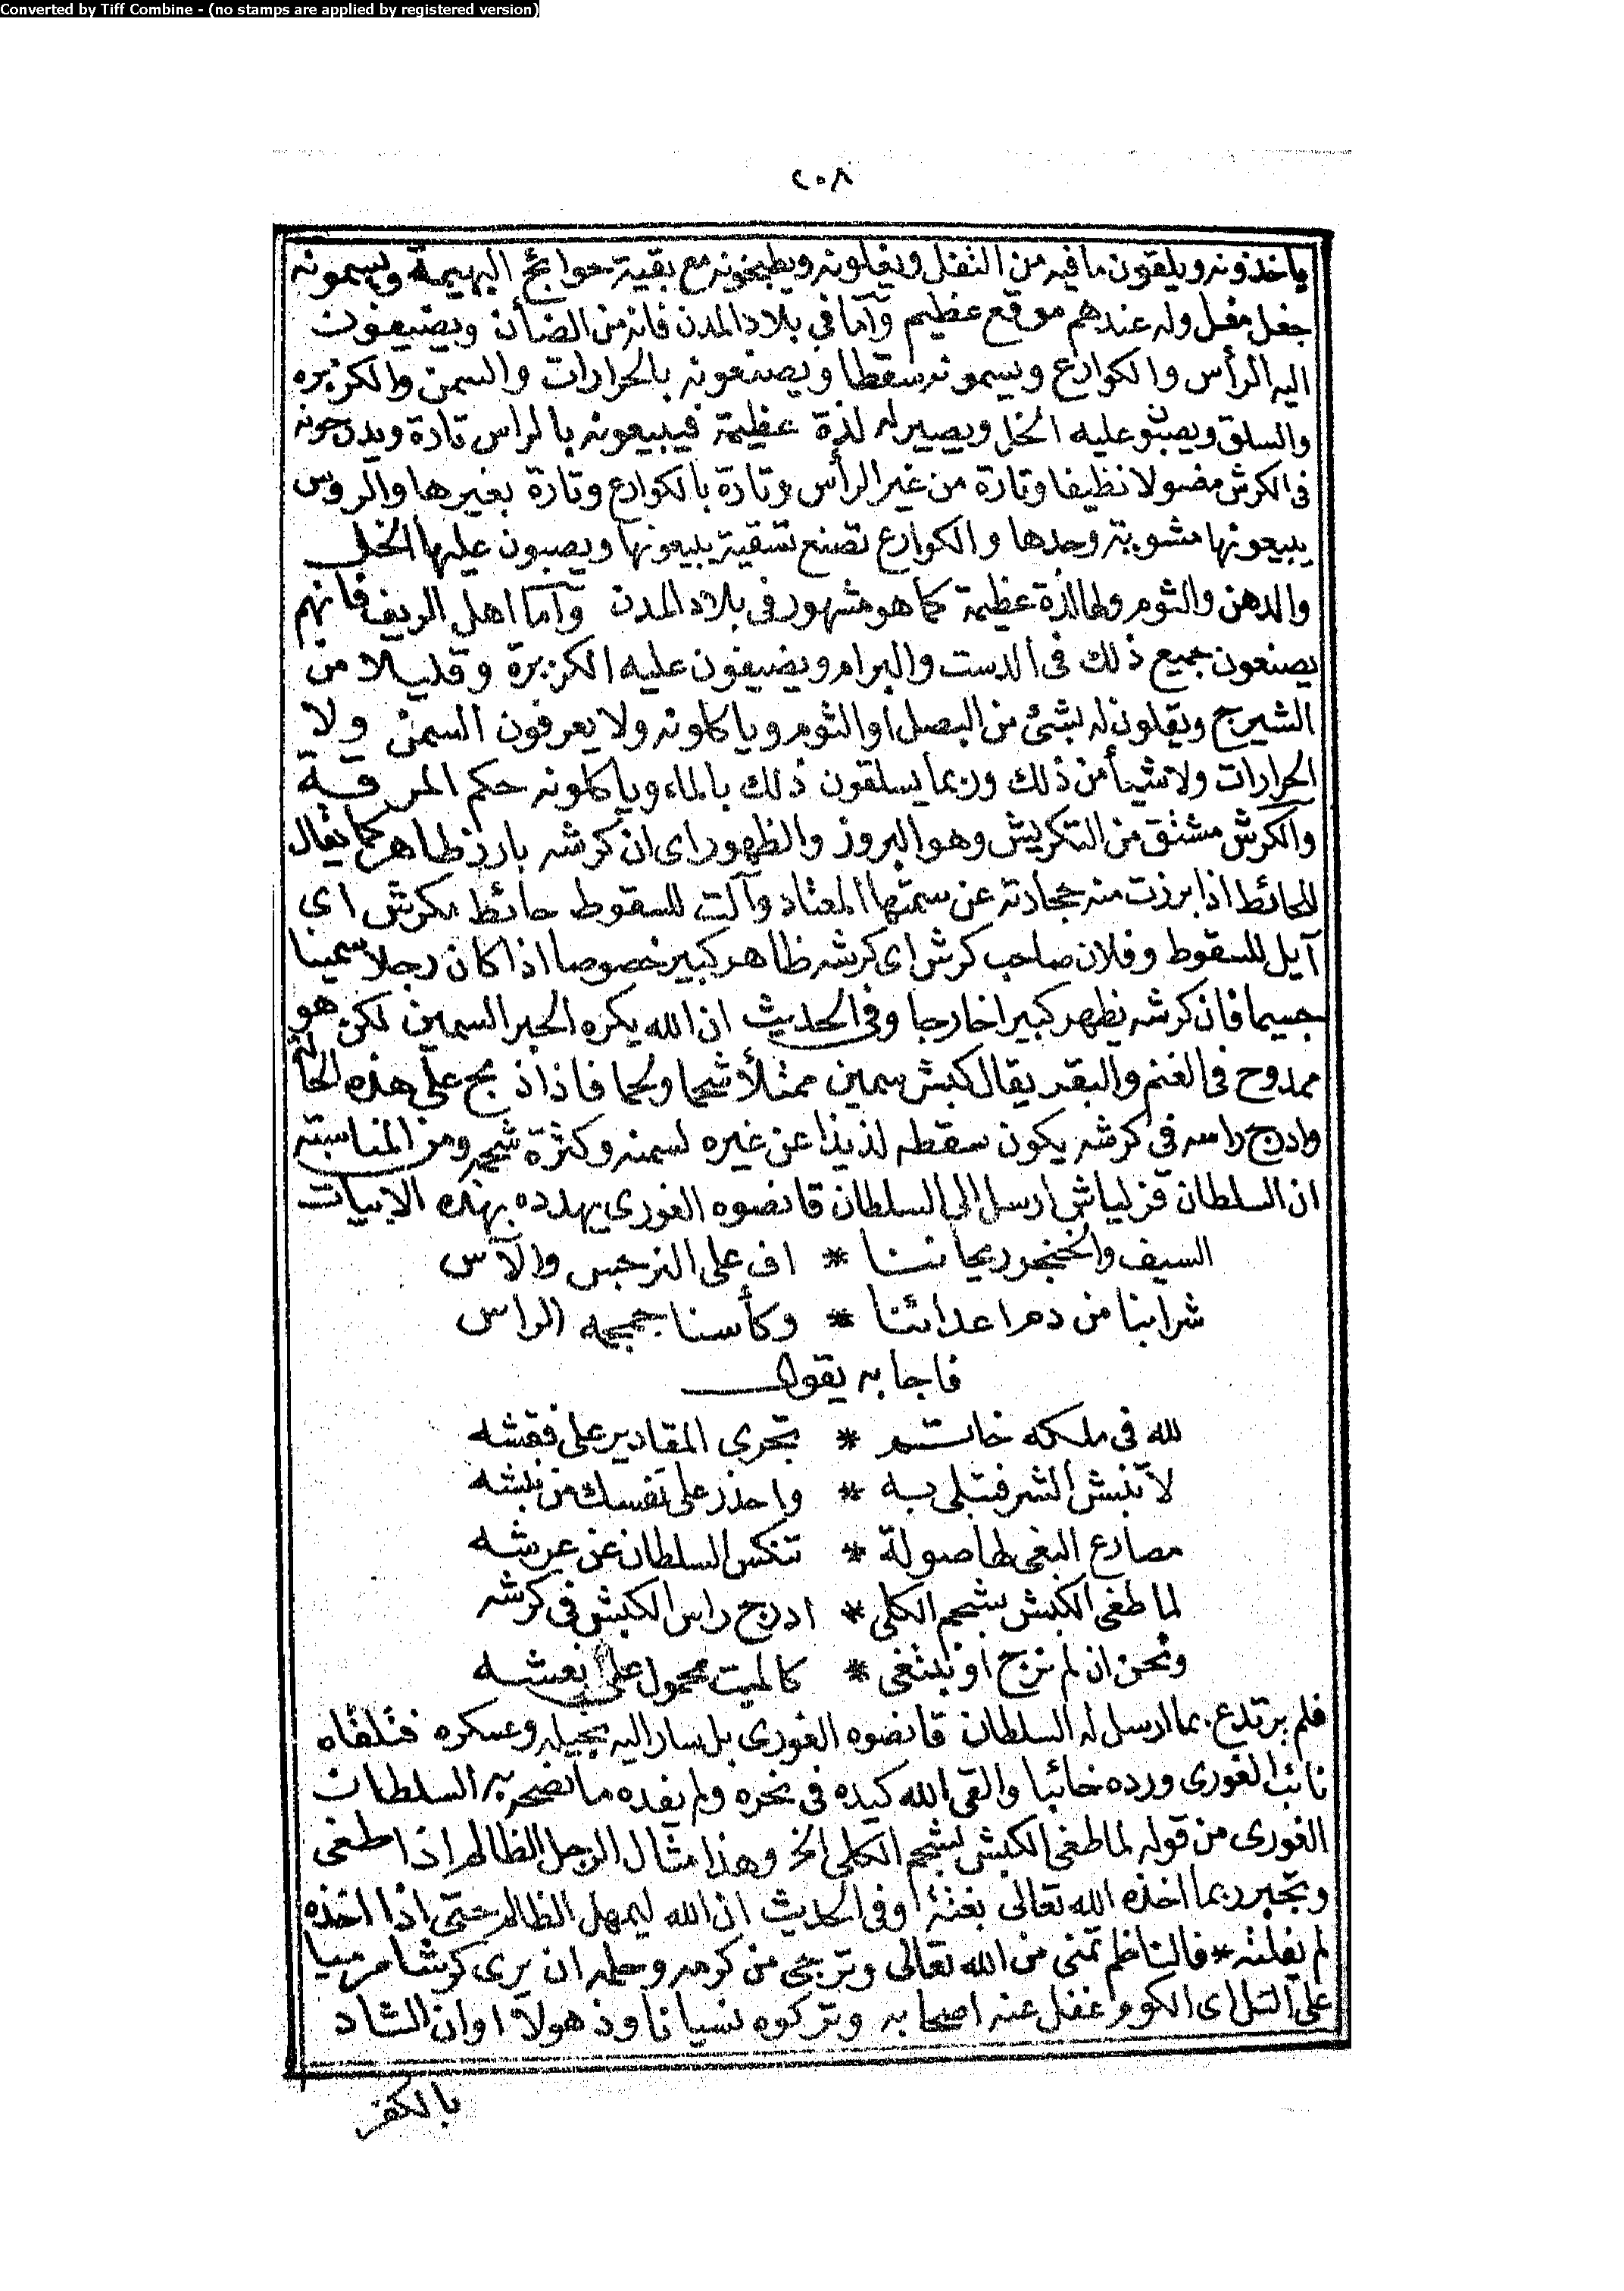 Converted by Tiff Combine - (no stamps are applied by registered version)
٢٠٨
ياخذونه ويلقون ما فيه من الثفل ويغلونه ويطبخونه مع بقية حوائج البهيمة ويسمونه
جغل مغل وله عندهم موقع عظيم وأما في بلاد المدن فانه من الضأن ويضيفون
اليه الرأس والكوارع ويسمونه سقطا ويصنعونه بالحرارات والسمن والكزبره
والسلق ويصبو عليه الخل ويصير له لذة عظيمة فيبيعونه بالراس تارة ويدرجونه
في الكرش مغسولا نظيفا وتارة من غير الرأس وتارة بالكوارع وتارة بغيرها والروس
يبيعونها مشوية وحدها والكوارع تصنع تسقية يبيعونها ويصبون عليها الخل
والدهن والثوم ولها لذة عظيمة كما هو مشهور في بلاد المدن وأما اهل الريف فانهم
يصنعون جميع ذلك في الدست والبرام ويضيفون عليه الكزبرة وقليلا من
الشيرج ويقلون له بشئ من البصل او الثوم وياكلونه ولا يعرفون السمن ولا
الحرارات ولا شيأ من ذلك وربما يسلقون ذلك بالماء وياكلونه حكم المرقة
والكرش مشتق من التكريش وهو البروز والظهور اى ان كرشه بارز ظاهر كما يقال
للحائط اذا برزت منه حجارته عن سمتها المعتاد وآلت للسقوط حائط مكرش اى
آيل للسقوط وفلان صاحب كرش اى كرشه ظاهر كبير خصوصا اذا كان رجلا سمينا
جسيما فان كرشه يظهر كبيرا خارجا وفي الحديث ان الله يكره الحبر السمين لكن هو
ممدوح في الغنم والبقر يقال كبش سمين ممتلأ شحما ولحما فاذا ذبح على هذه الحالة
وادرج راسه في كرشه يكون سقطه لذيذا عن غيره لسمنه وكثرة شحمه ومن المناسبة
ان السلطان قزلباش ارسل الى السلطان قانصوه الغورى يهدده بهذه الابيات
السيف والخنجر ريحاننا * اف على النرجس والآس
شرابنا من دم اعدائنا * وكأسنا جمجمه الراس
فاجابه يقول
لله في ملكه خاتم * تجرى المقادير على نقشه
لا تنبش الشر فتبلى به * واحذر على نفسك من نبشه
مصارع البغى لها صولة * تنكس السلطان عن عرشه
لما طغى الكبش بشحم الكلى * ادرج راس الكبش في كرشه
ونحن ان لم نرج او نبتغى * كالميت محمول على نعشه
فلم يرتدع بما ارسل له السلطان قانصوه الغورى بل سار اليه بخيله وعسكره فتلقاه
نائب الغورى ورده خائبا والقى الله كيده في نحره ولم يفده ما نصحه به السلطان
الغورى من قوله لما طغى الكبش بشحم الكلى الخ وهذا مثال الرجل الظالم اذا طغى
وتجبر ربما اخذه الله تعالى بغتة وفي الحديث ان الله ليمهل الظالم حتى اذا اخذه
لم يفلته * فالناظم تمنى من الله تعالى وترجى من كرمه وحلمه ان يرى كرشا مرميا
على التل اى الكوم وغفل عنه اصحابه وتركوه نسيانا وذهولا او ان الشاد
بالكفر